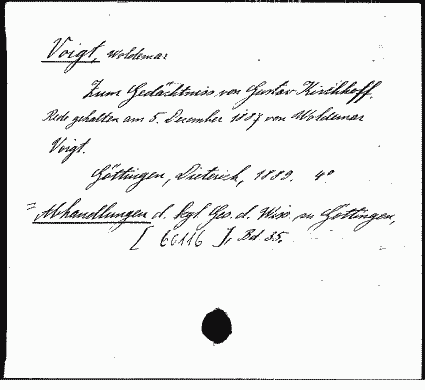 Voigt, Woldemar
Zum Gedächtniss von Gustav Kirchhoff.
Rede gehalten am 5. December 1887 von Woldemar
Voigt.
Göttingen, Dieterich, 1889. 4°
= Abhandlungen d. Kgl Ges. d. Wiss. zu Göttingen,
[ 66116 ], Bd 35.